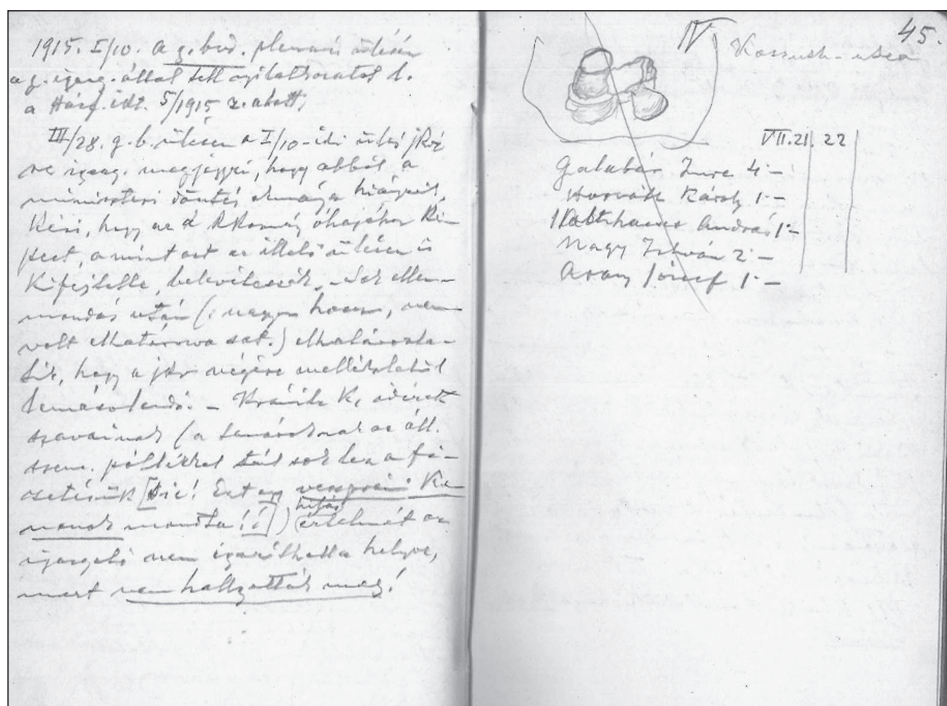 1915. I/10. a g. biz. plenáris ülésén
a g. igazg. által tett nyilatkozatot l.
a Házf. ikt. 5/1915 sz. alatt;
III/28. g. b. ülésen a I/10-iki ülés jkö
re igazg. megjegyzi, hogy abból a
ministeri döntés hiányzik.
Kéri, hogy az a óhajához ki-
pest, amint azt az illető ülésen is
kifejtette, bevétessék. Sok ellen-
mondás után (: nagyon hosszu, nem
volt elhatározva sat.) elhatározta-
tik, hogy a jkv végére mellékletül
lemásolandó. - K.
szavainak (a tanároknak az áll.
szem. pótlékkal túl sok lesz a fi-
zetésük [sic! Ezt egy veszprémi ka-
nonok mondta!!]) hibás értelmét az
igazgató nem igazíthatta helyre,
mert nem hallgatták meg!
45.
IV
Kossuth-utca
VII. 21 22
Galabár Imre 4 -
Horváth Károly 1 -
András 1 -
Nagy István 2 -
Arany József 1 -